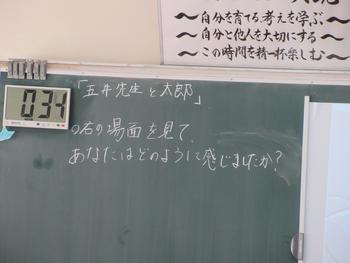 〜自分を育てる考えを学ぶ〜
〜自分と他人を大切にする〜
〜この時間を精一杯楽しむ〜
「五井先生と太郎」
の右の場面を見て、
あなたはどのように感じましたか？